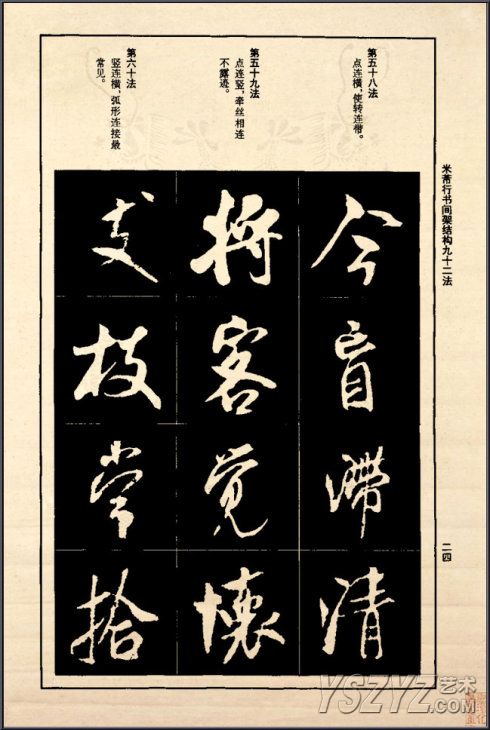 米芾行书间架结构九十二法
二四
第五十八法
点连横，使转连带。
第五十九法
点连竖，牵丝相连
不露迹。
第六十法
竖连横，弧形连接最
常见。
今盲滯清
将客覚懷
支枝常拾
YSZYZ艺术.com